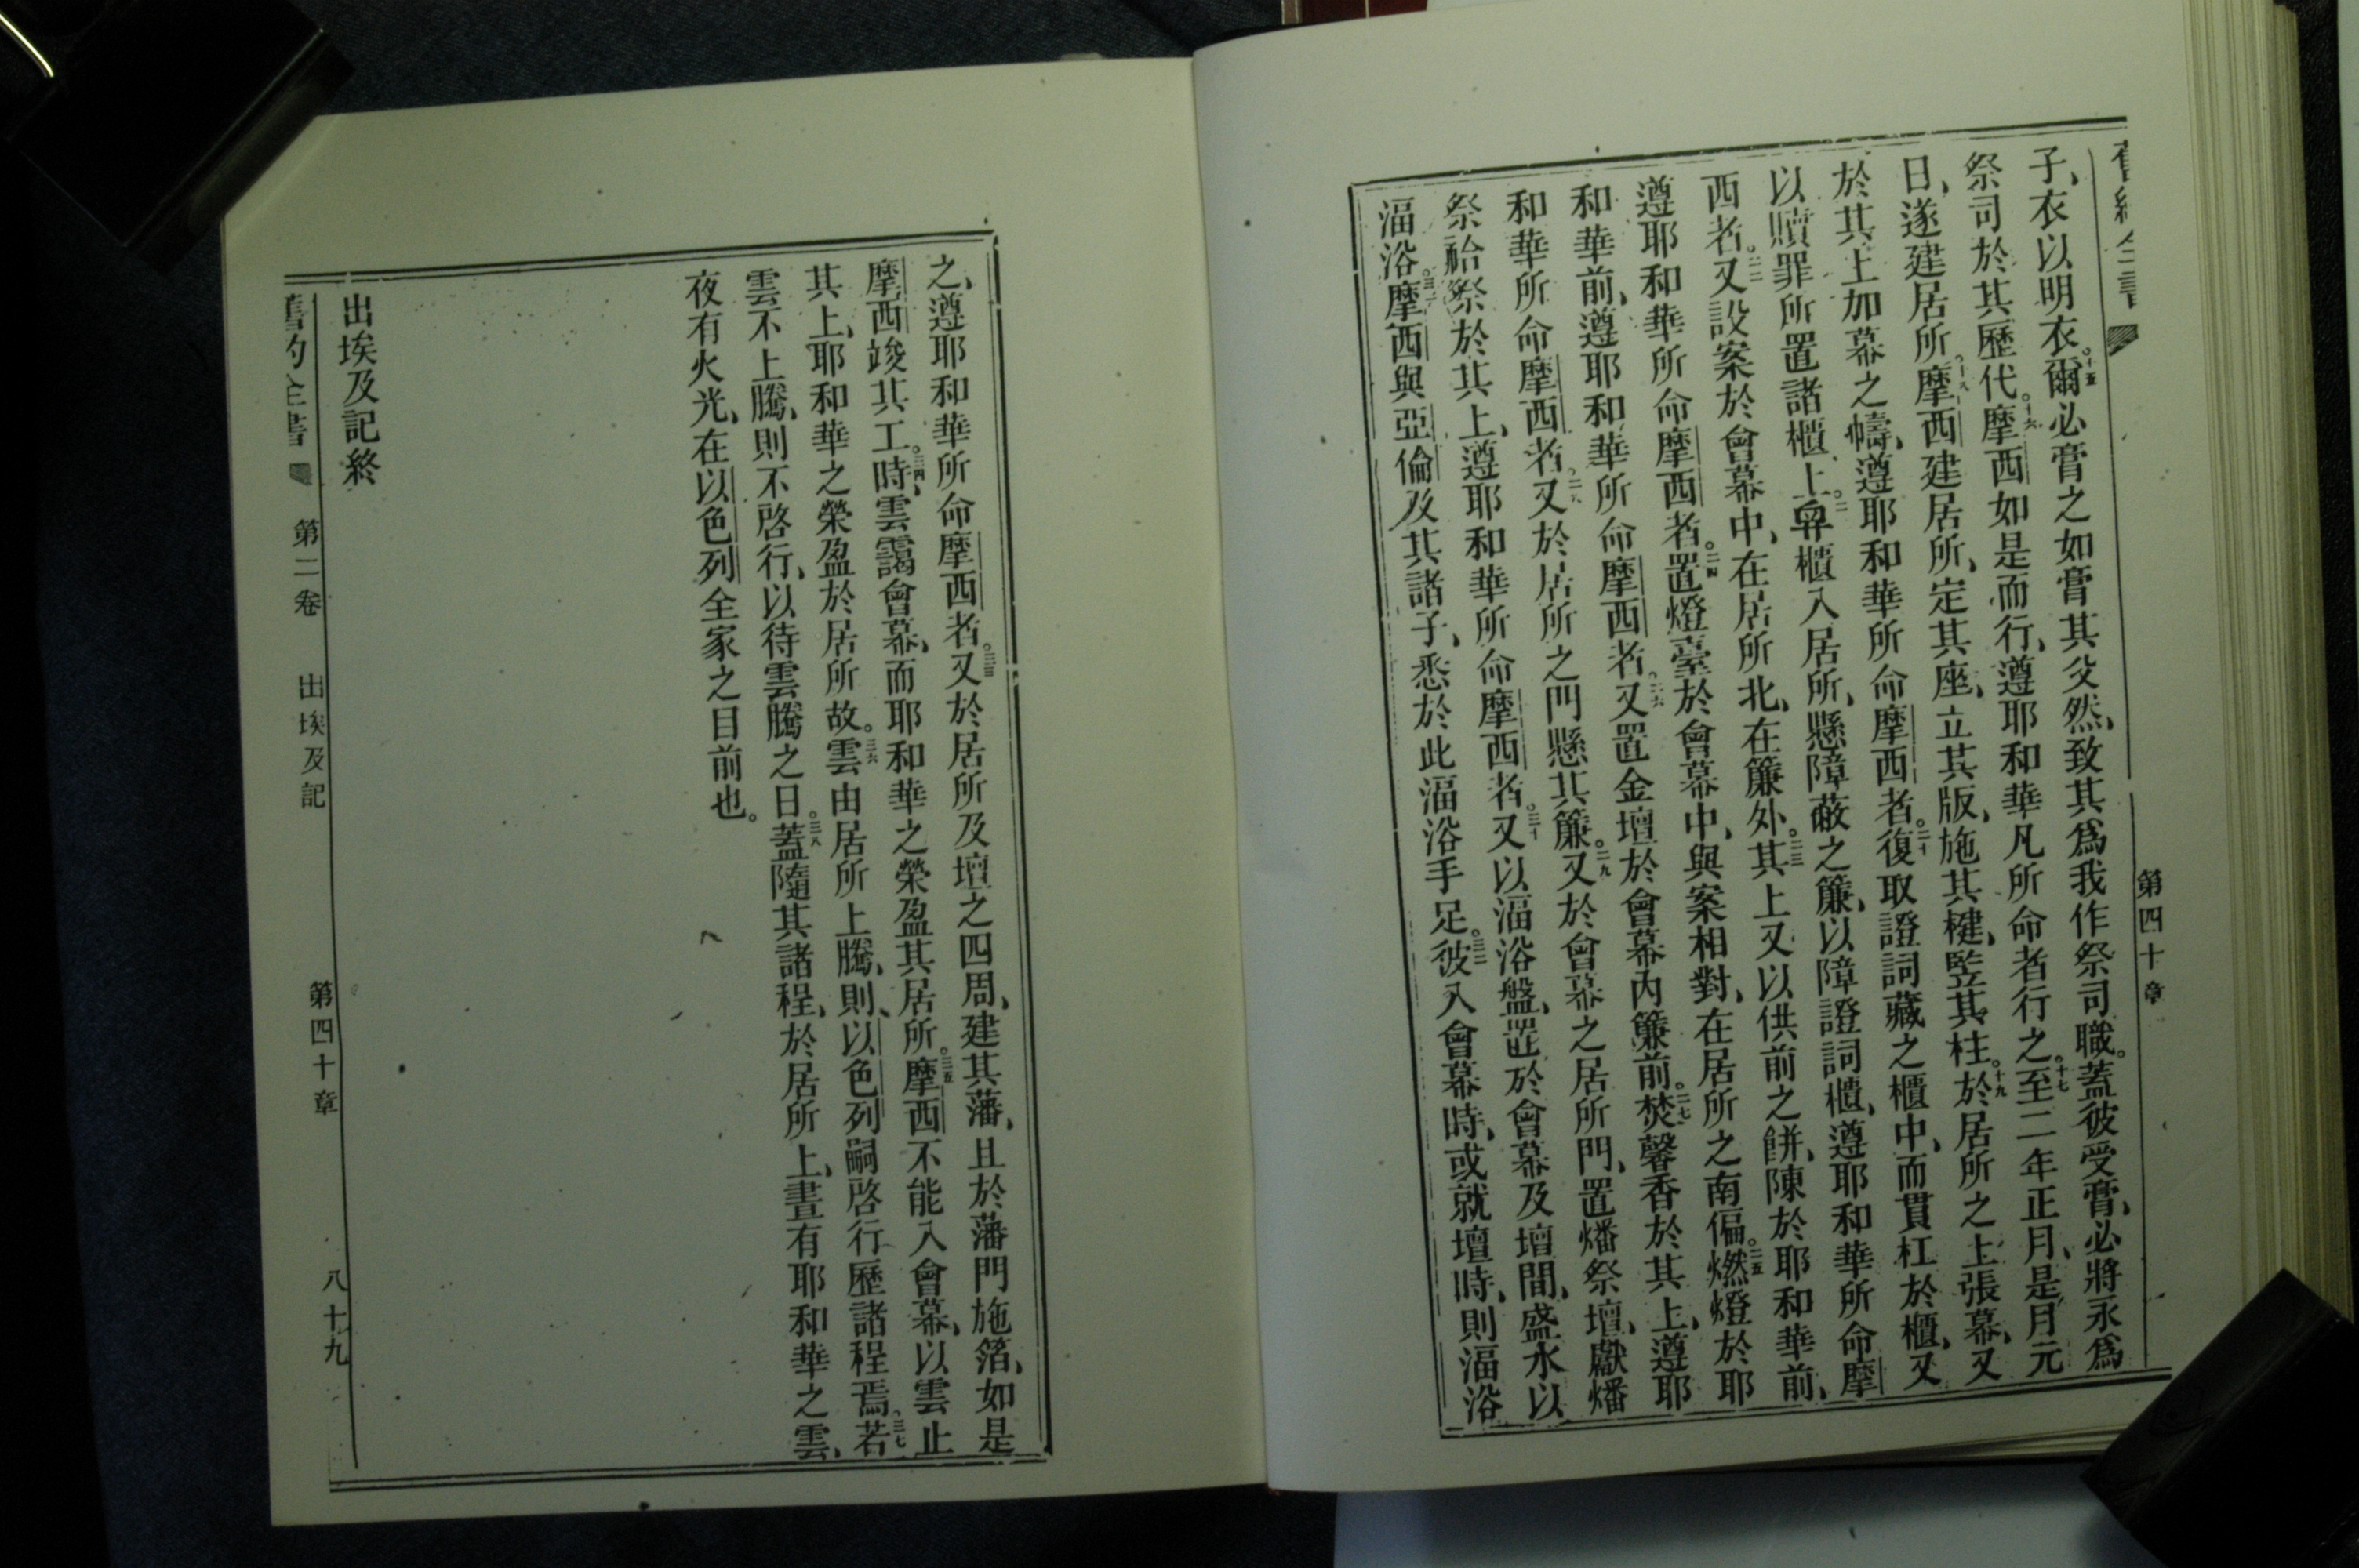 全書 第四十章
子、衣以明衣。十五爾必膏之如膏其父然、致其爲我作祭司職。蓋彼受膏、必將永爲
祭司於其歷代。十六摩西如是而行、遵耶和華凡所命者行之。十七至二年正月、是月元
日、遂建居所。十八摩西建居所、定其座、立其版、施其楗、竪其柱。十九於居所之上張幕、又
於其上加幕之幬、遵耶和華所命摩西者。二十復取證詞藏之櫃中、而貫杠於櫃、又
以贖罪所置諸櫃上。舁櫃入居所、懸障蔽之簾、以障證詞櫃、遵耶和華所命摩
西者。二二又設案於會幕中、在居所北、在簾外。二三其上又以供前之餅、陳於耶和華前、
遵耶和華所命摩西者。二四置燈臺於會幕中、與案相對、在居所之南偏。二五燃燈於耶
和華前、遵耶和華所命摩西者。二六又置金壇於會幕內簾前。二七焚馨香於其上、遵耶
和華所命摩西者。二八又於居所之門懸其簾。二九又於會幕之居所門、置燔祭壇、獻燔
祭祫祭於其上、遵耶和華所命摩西者。三十又以湢浴盤、置於會幕及壇間、盛水以
湢浴。三一摩西與亞倫及其諸子、悉於此湢浴手足。三二彼入會幕時、或就壇時、則湢浴
之、遵耶和華所命摩西者。三三又於居所及壇之四周、建其藩、且於藩門施箔、如是
摩西竣其工。三四時、雲靄會幕、而耶和華之榮盈其居所。三五摩西不能入會幕、以雲止
其上、耶和華之榮盈於居所故。三六雲由居所上騰、則以色列嗣啓行歷諸程焉。三七若
雲不上騰、則不啓行、以待雲騰之日。三八蓋隨其諸程、於居所上、晝有耶和華之雲、
夜有火光、在以色列全家之目前也。
出埃及記終
舊約全書 第二卷 出埃及記 第四十章 八十九